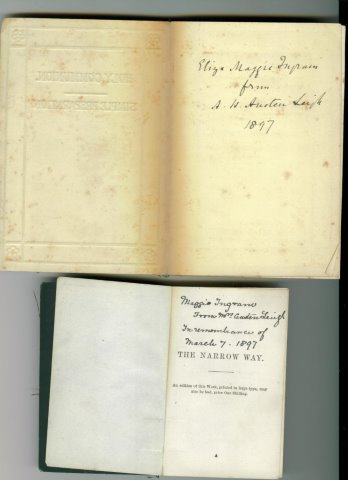 HOLY COMMUNION.
Eliza Maggie Ingram
from
A. H. Austen Leigh
1897
Maggie Ingram
From Mrs Austen Leigh
In remembrance of
March 7. 1897
THE NARROW WAY.
An edition of this Work, printed in large type, may
also be had, price One Shilling.